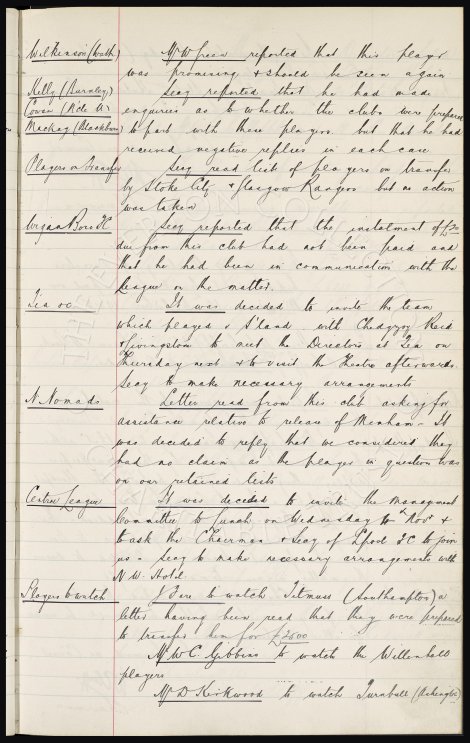 Wilkinson (Wath) Mr W Green reported that this player
was promising & should be seen again
Kelly (Burnley) Secy reported that he had made
Cowan (Kilo Ath) enquiries as to whether the clubs were prepared
Mackay (Blackburn) to part with these players. but that he had
received negative replies in each case
Players on transfer Secy read list of players on transfer
by Stoke City & Glasgow Rangers but no action
was taken
Wigan Boro £ Secy reported that the instalment of
due from this club had not been paid and
that he had been in communication with the
League on the matter.
Tea &c It was decided to invite the team
which played v S'land with Chedgzoy Reid
& Livingstone to meet the Directors at Tea on
Thursday next & to visit the Theatre afterwards.
Secy to make necessary arrangements
N. Nomads Letter read from this club asking for
assistance relative to release of Menham - It
was decided to reply that we considered they
had no claim as the player in question was
on our retained lists
Central League It was decided to invite the Management
Committee to lunch on Wednesday Nov &
to ask the Chairman & Secy of L'pool F.C to join
us - Secy to make necessary arrangements with
N.W. Hotel.
Players to watch J Fare to watch Titmuss (Southampton) a
letter having been read that they were prepared
to transfer him for £2500
Mr W C Gibbins to watch the Willenhall
players
Mr D Kirkwood to watch Turnbull (Ashington)